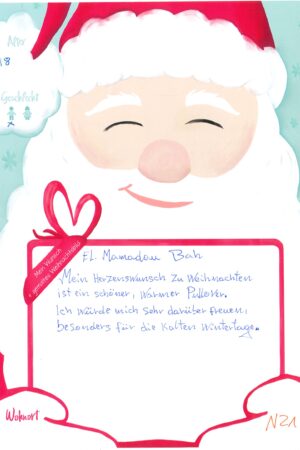 Alter
18
Geschlecht
Mein Wunsch
EL Mamadou Bah
Mein Herzenswunsch zu Weihnachten
ist ein schöner, warmer Pullover.
Ich würde mich sehr darüber freuen,
besonders für die kalten Wintertage.
Wohnort
N21